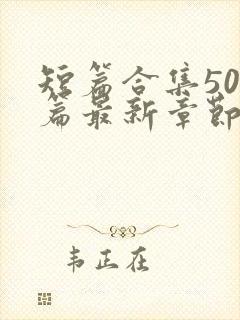 短篇合集50
篇最新章节
韦正在